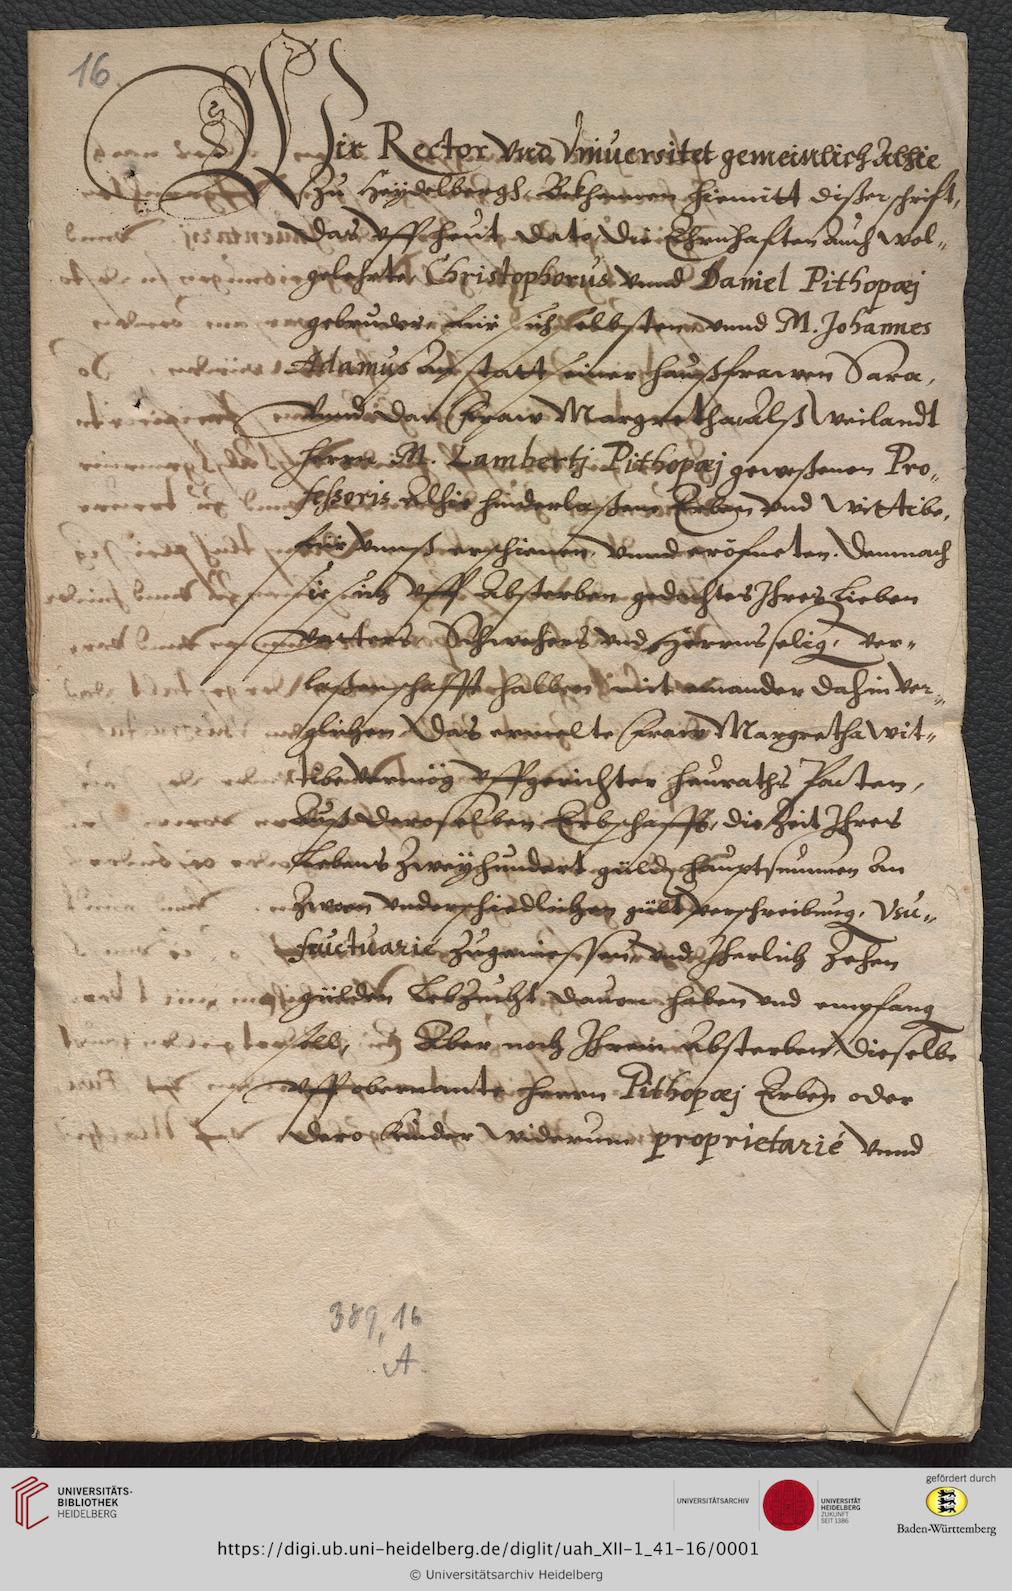 16
Wir Rector vnd Vniuersitet gemeinlich Alhie
zu Heydelbergh, Bekhennen hiemitt dißer schrifft,
Das vff heut dato, die Ehrnhafften auch wol-
gelehrte Christophorus vnnd Daniel Pithopæj
gebruder für sich selbsten vnnd M. Johannes
Adamus an statt seiner haußfrawen Sara,
vnnd dan fraw Margretha, alß Weilandt
herrn M. Lambertj Pithopæj geweßenen Pro-
fessoris alhie hinderlaßene Erben vnd Wittibe,
für vnnß erschienen, vnnd eröfneten. Demnach
sie sich vff Absterben gedachtes Ihres Lieben
vatters, Schwehers vnd Herrns selig, ver-
laßenschafft halben mit einander dahin ver-
glichen, Das ermelte fraw Margretha Wit-
tibe vermög vffgerichter heuraths Pacten,
Auß deroselben Erbschafft, die Zeit Ihres
Lebens Zweyhundert guld haupt summen an
zwoen vnderschiedlichen gült verschreibung, Vsu-
fructuarie zugeniessen, vnd Iherlich Zehen
gülden Lebzucht dauon haben vnd empfang
soll, Aber noch Ihrem Absterben, dieselbe
vff obernante herrn Pithopæj Erben oder
dero kinder widerumb proprietarié vnnd
389,16
A
UNIVERSITÄTS-
BIBLIOTHEK
HEIDELBERG
UNIVERSITÄTSARCHIV
UNIVERSITÄT
HEIDELBERG
ZUKUNFT
SEIT 1386
gefördert durch
Baden-Württemberg
https://digi.ub.uni-heidelberg.de/diglit/uah_XII-1_41-16/0001
© Universitätsarchiv Heidelberg